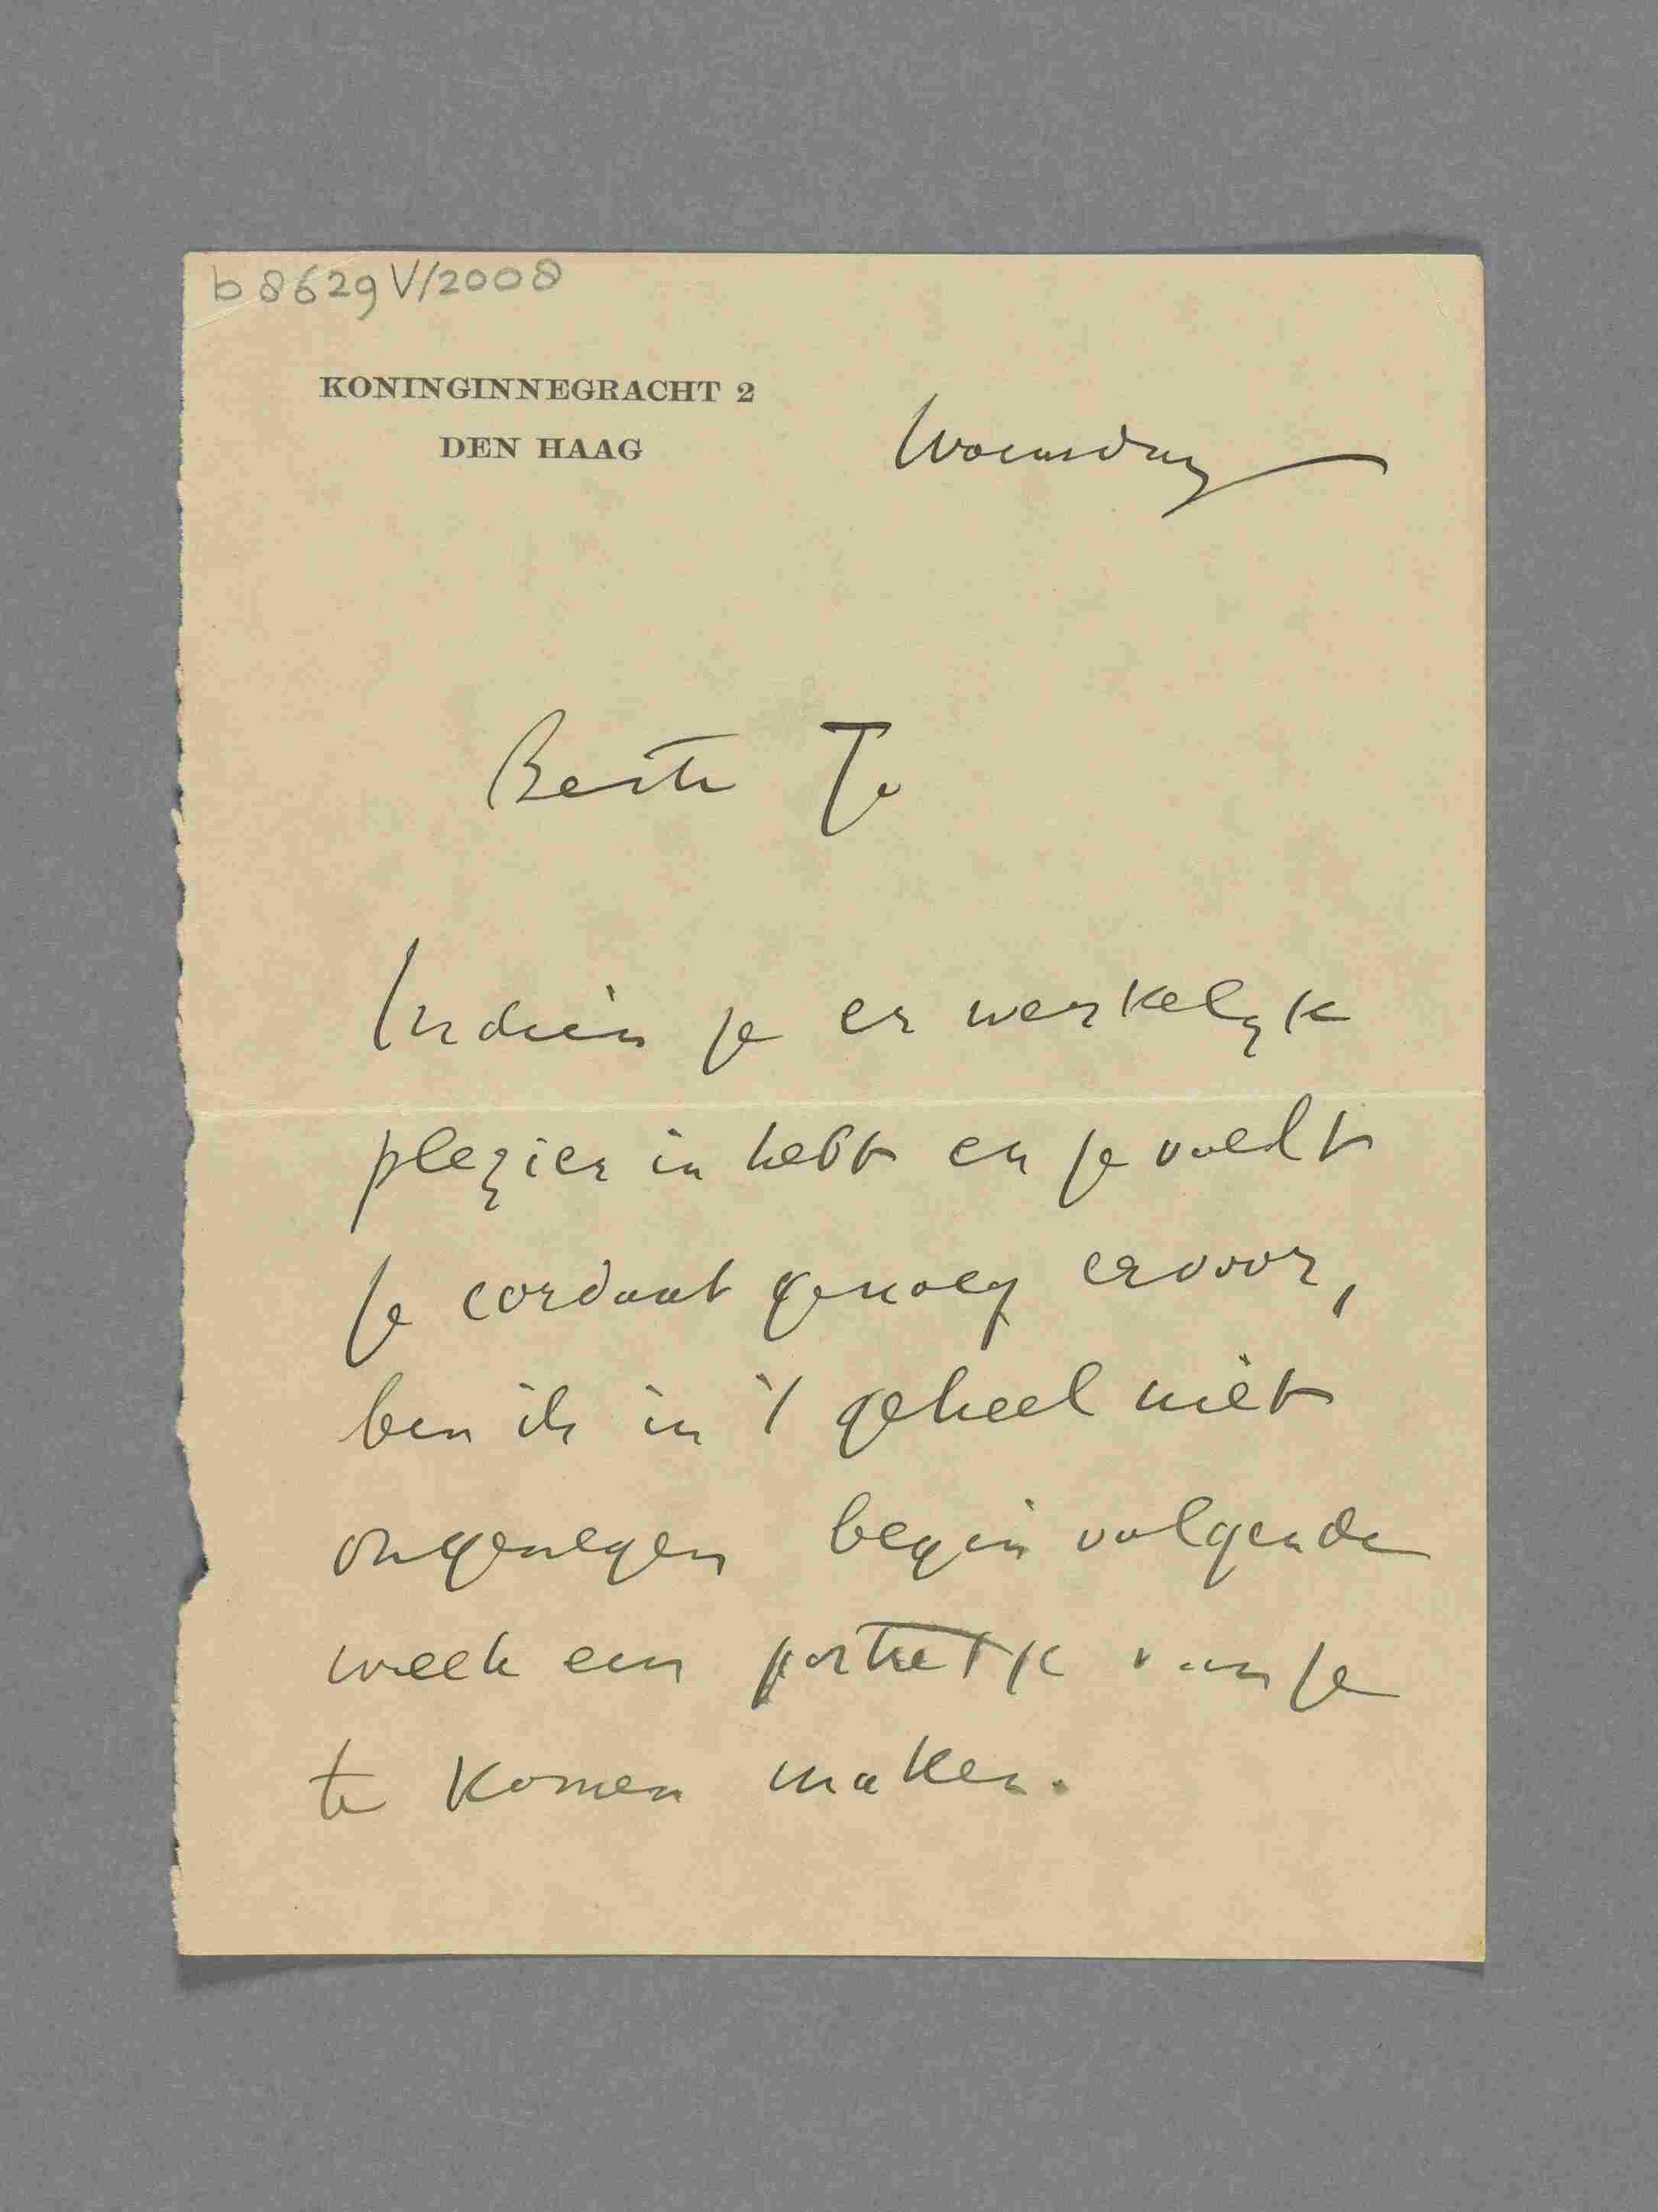 b 8629 V/2008
KONINGINNEGRACHT 2
DEN HAAG
Woensdag
Beste Jo
Indien je er werkelijk
plezier in hebt en je voelt
je cordaat genoeg ervoor,
ben ik in 't geheel niet
ongenegen begin volgende
week een portretje van je
te komen maken.